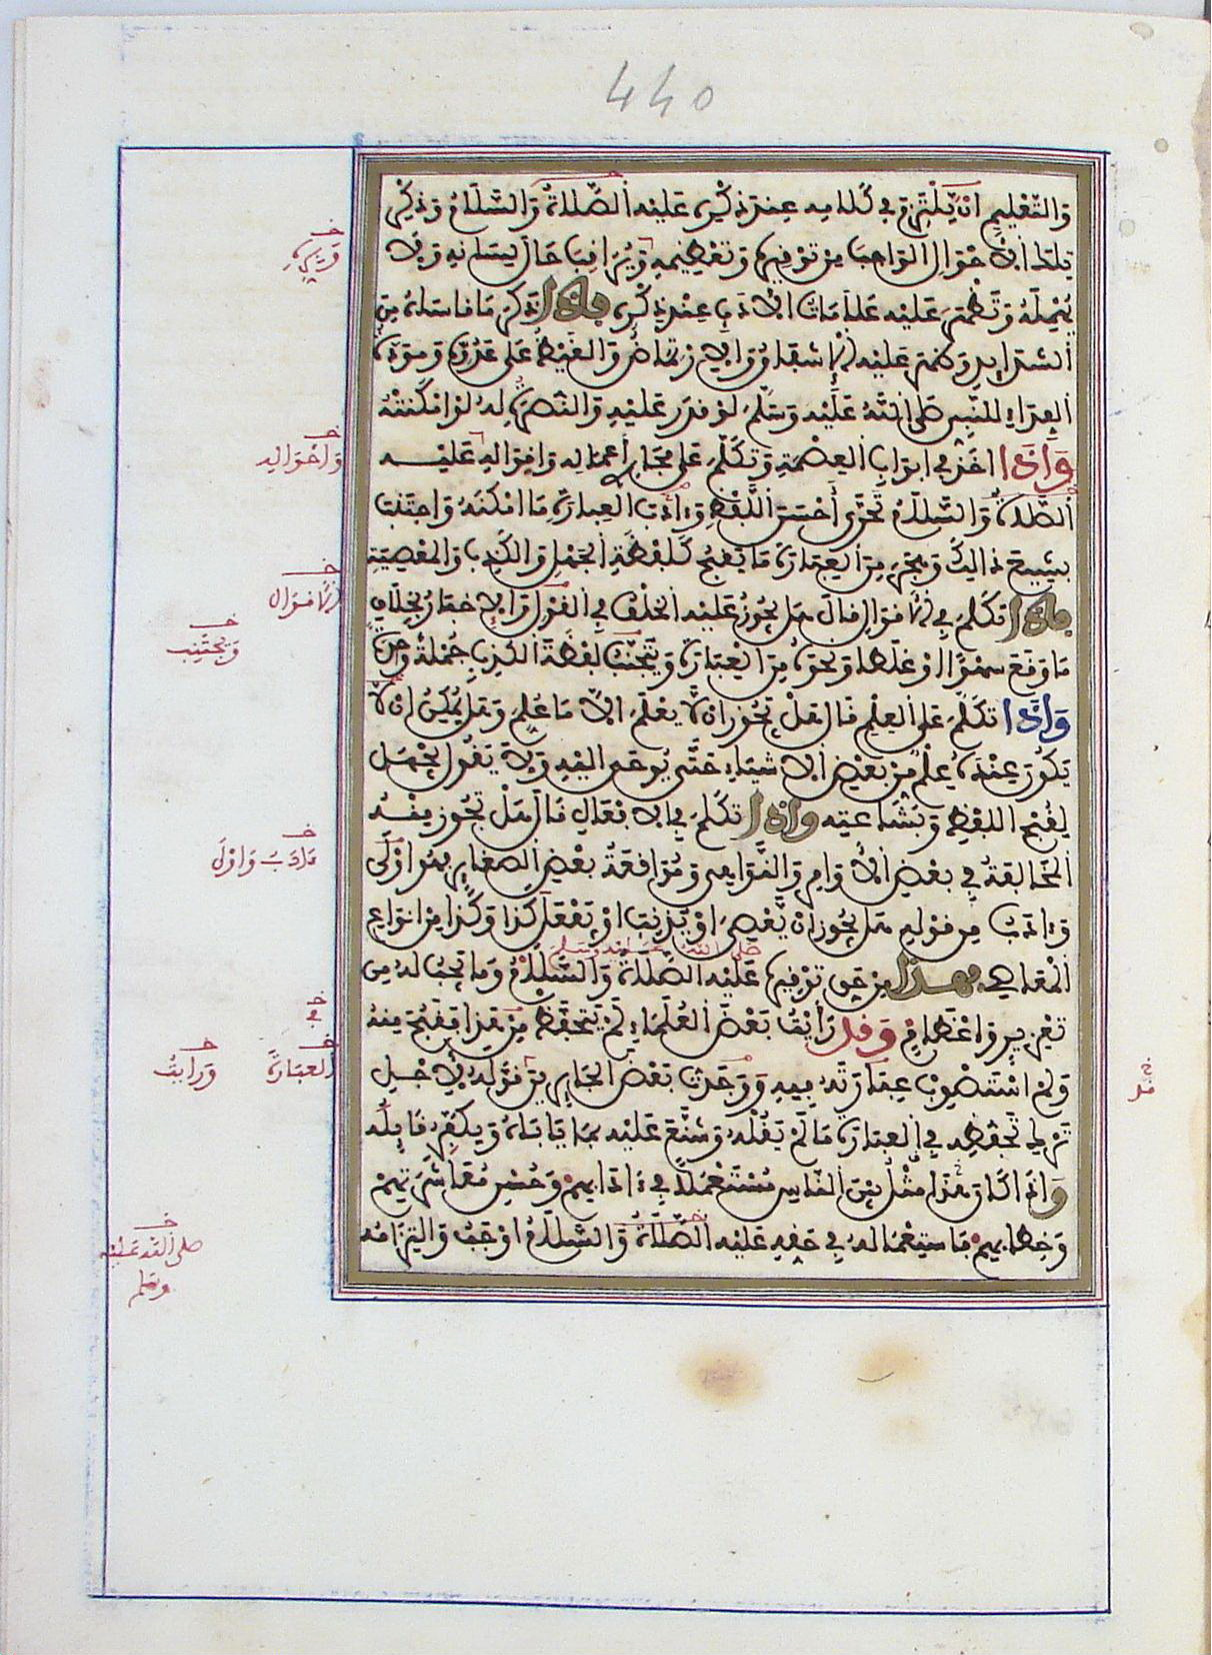 440
والتعليم ان يلتزم في كلامه عند ذكره عليه الصلاة والسلام وذكر
تلك الاحوال الواجب من توقيره وتعظيمه ويراقب حال لسانه ولا
يهمله وتظهر عليه علامات الادب عند ذكره فاذا ذكر ما قاساه من
الشدايد ظهر عليه الاشفاق والارتماض والغيظ على عدوه ومودة
الفداء للنبي صلى الله عليه وسلم لو قدر عليه والنصرة له لو امكنته
واذا اخذ في ابواب العصمة وتكلم على مجاري اعماله واقواله عليه
الصلاة والسلام تحرى احسن اللفظ وءادب العبارة ما امكنه واجتنب
بشيع ذلك وهجر من العبارة ما يقبح كلفظة الجهل والكذب والمعصية
فاذا تكلم في الاقوال قال هل يجوز عليه الخلف في القول والاخبار بخلاف
ما وقع سهوا او غلطا ونحوه من العبارة ويتجنب لفظة الكذب جملة واحدة
واذا تكلم على العلم قال هل يجوز ان لا يعلم الا ما علم وهل يمكن ان لا
يكون عنده علم من بعض الاشياء حتى يوحى اليه ولا يقول بجهل
لقبح اللفظ وبشاعته واذا تكلم في الافعال قال هل تجوز منه
المخالفة في بعض الاوامر والنواهي ومواقعة بعض الصغاير فهو اولى
وءادب من قوله هل يجوز ان يعصي او يذنب او يفعل كذا وكذا من انواع
صلى الله عليه وسلم
المعاصي فهذا من حق توقيره عليه الصلاة والسلام وما يجب له من
تعزيز واعظام وقد رأيت بعض العلماء لم يتحفظ من هذا فقبح منه
ولم استصوب عبارته فيه ووجدت بعض الجايرين قوله لاجل
ترك تحفظه في العبارة ما لم يقله وشنع عليه بما يأباه ويكفر قايله
واذا كان هذا مثل بين الناس مستعملا في ءادابهم وحسن معاشرتهم
وخطابهم فاستعماله في حقه عليه الصلاة والسلام اوجب والتزامه
واحواله
الاقوال
ويجتنب
فأدب واولى
في
العبارة
ورايت
قد
صلى الله عليه
وسلم